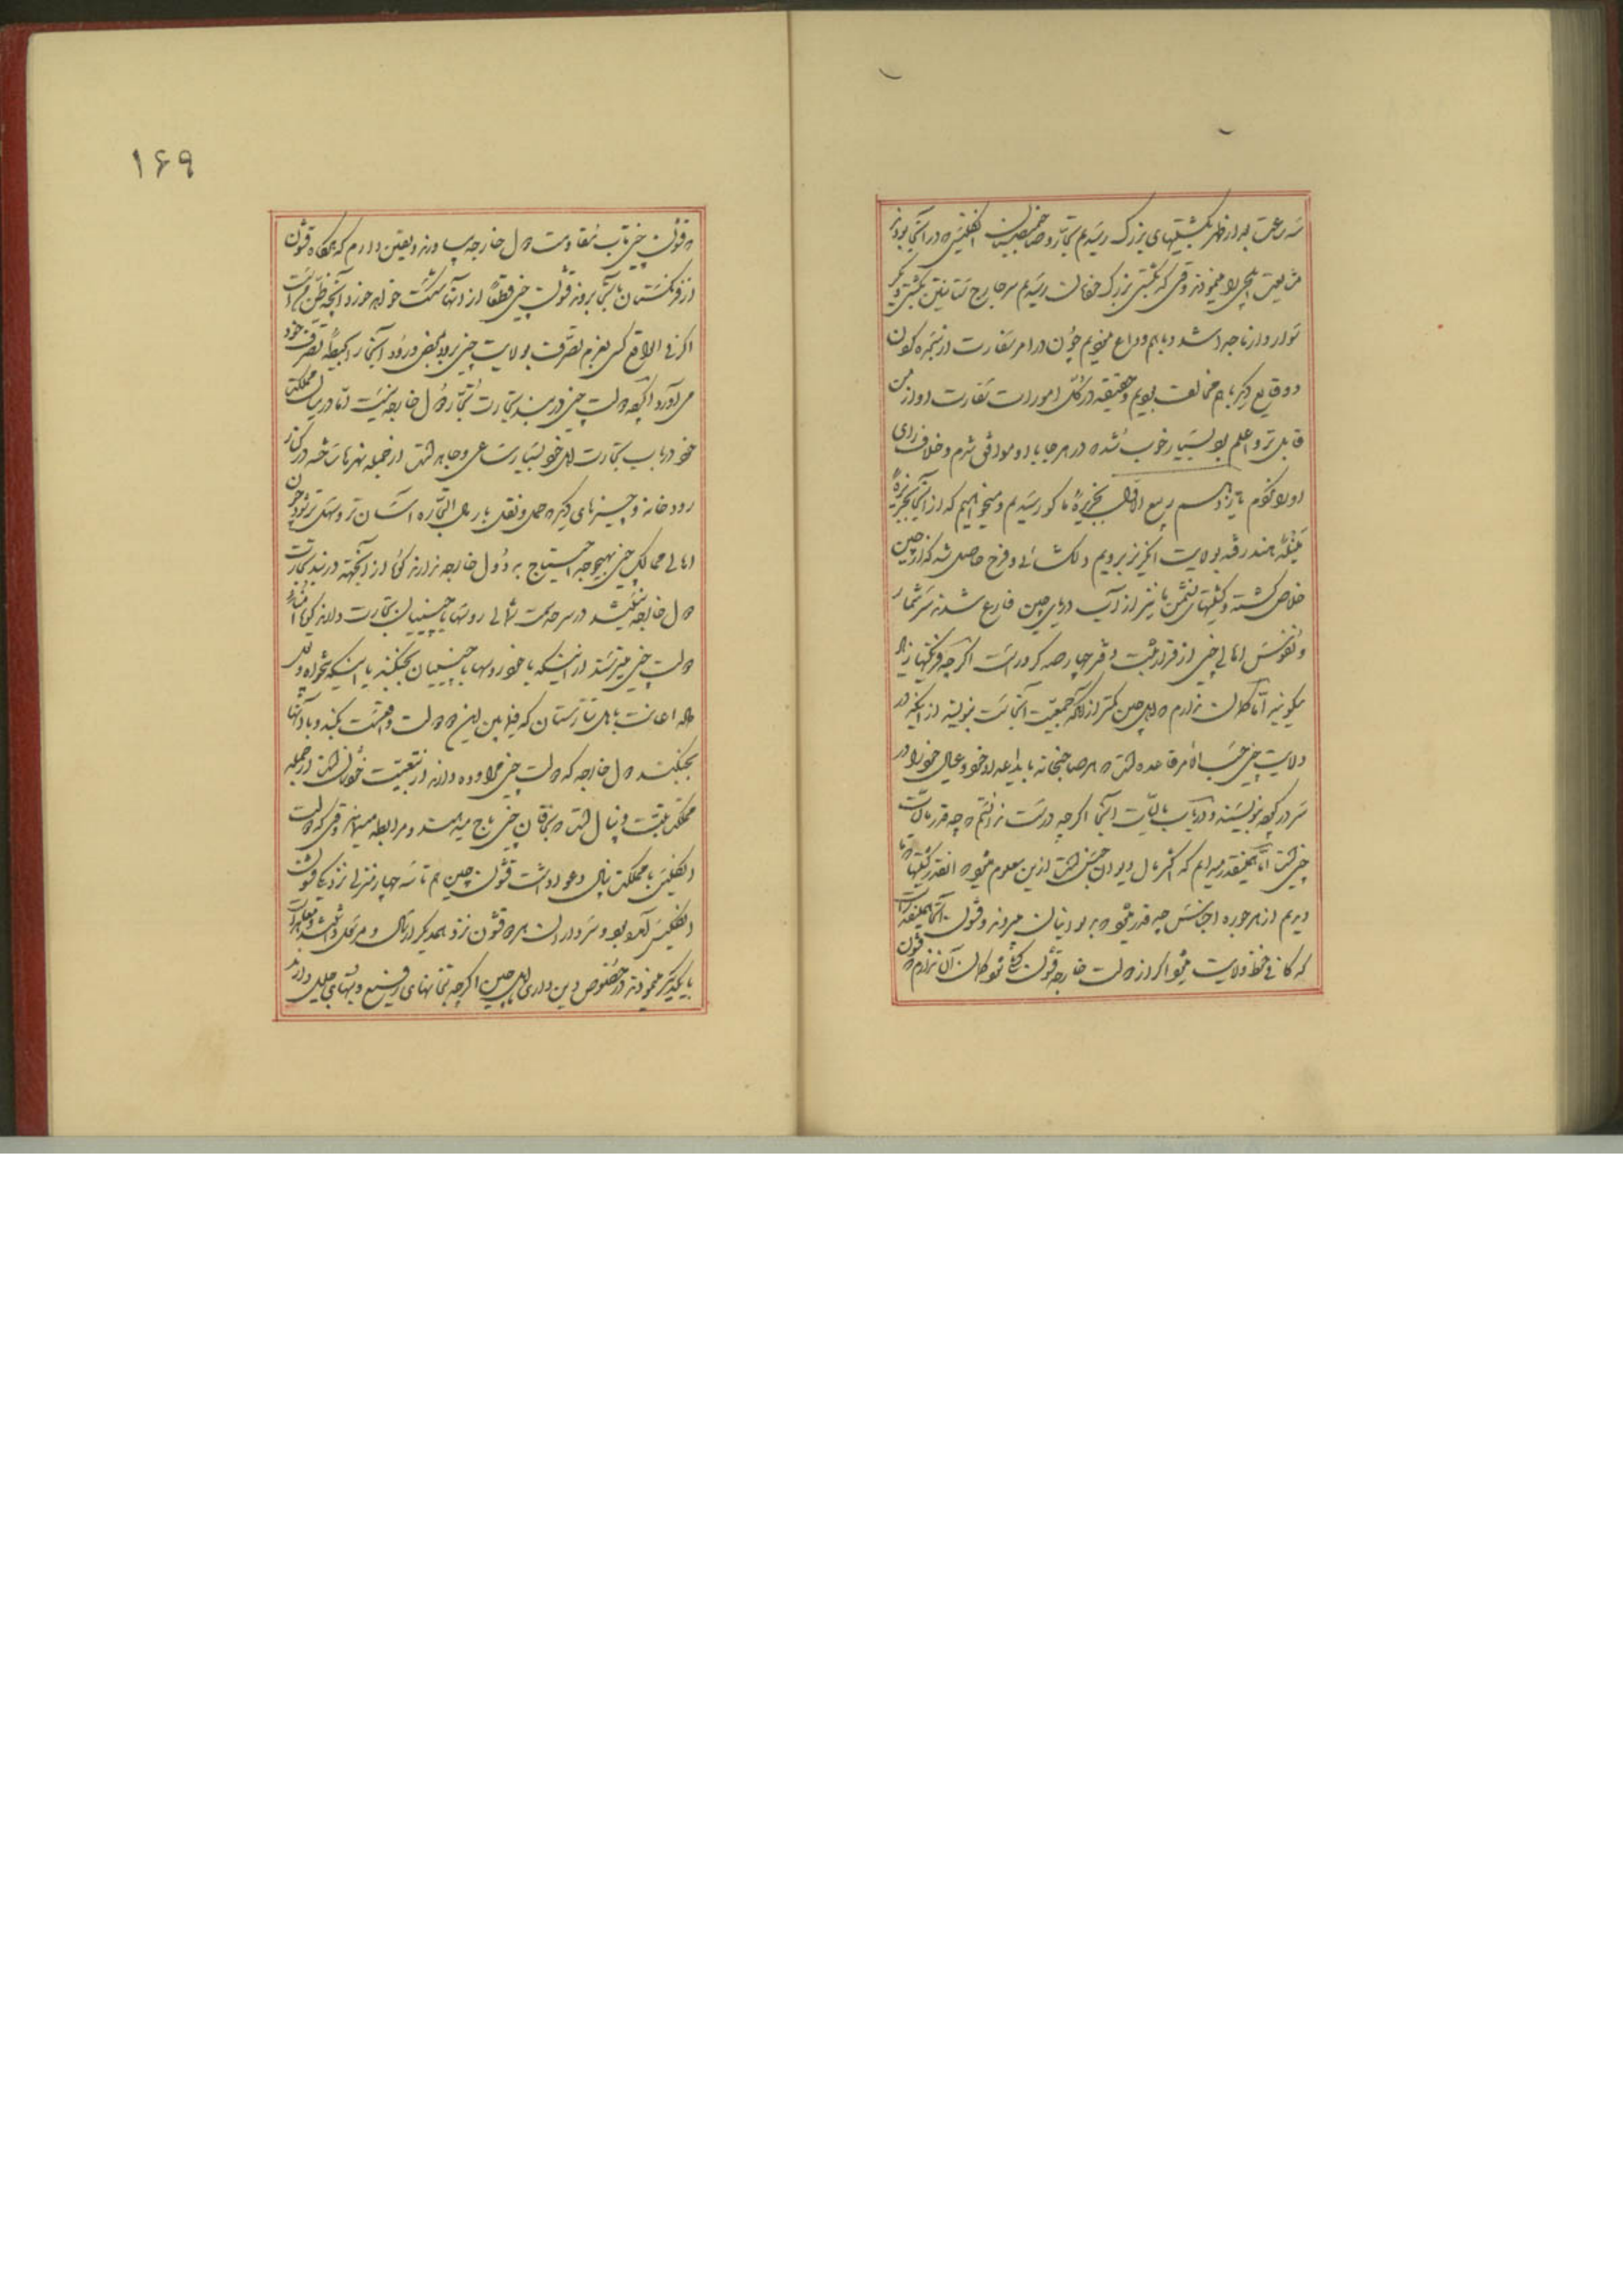 سه ساعت بعد از ظهر بکشتیهای بزرگ رسیدیم تجار و صاحبمنصبان انگلیس که در آنجا بودند
مشایعت ایلچی را مینمودند وقتی که بکشتی بزرگ خفانت رسیدیم سر جارج ستانتن بکشتی دیگر
سوار و از ما جدا شد و با هم وداع نمودیم چون در امر سفارت از شجره کون
و وقایع دیگر با هم مخالف بودیم و حقیقة در کل امورات سفارت او از من
قابل تر و اعلم بود بسیار خوب شد که در هر جا با او موافق شدم و خلاف رای
او را نکردم تاریخ بیستم ربیع الاول بجزیره ماکو رسیدیم و میخواهیم که از آنجا بجزیره
منیله هند رفته بولایت انگریز برویم دلگشائی و فرح حاصل شد که از چین
خلاص گشته و کشتیهای لنتمن ما نیز از آب دریای چین فارغ شدند سر شمار
و نفوس اهالی چین از قرار ثبت دفتر چهار صد کرور است اگر چه فرنگیها زیاد
میگویند اما گمان ندارم که اهل چین کمتر از آنکه جمعیت آنجاست بنویسند از اینکه در
ولایت چین حسب الامر قاعده است که هر صاحبخانه باید اعداد خود و عیال خود را در
سر در کوچه بنویسند و در باب مالیات آنجا اگر چه درست ندانستم که چه قدر مالیات
چین است اما همینقدر میدانم که اکثر مال دیوان جنس است ازین معلوم میشود که انقدر کشتیها که ما
دیدیم از هر جوره اجناس چه قدر میشود که به بودنیان میبردند و قشون آنجا همینقدر است
که کافی حفظ ولایت میشود اگر از دولت خارجه قشون کشی شود گمان آن ندارم که قشون
۱۶۹
که قشون چین تاب مقاومت دول خارجه بیاورند و یقین دارم که هرگاه قشون
از فرنگستان بآنجا بروند قشون چین قطعاً از آنها شکست خواهد خورد آنچه ظن من است
اگر فی الواقع کسی بعزم تصرف بولایت چین برود بمحض ورود آنجا را بحیطه تصرف خود
می آورد اگر چه دولت چین در بند تجارت تجار دول خارجه نیست اما در میان مملکت
خود در باب تجارت اهل خود بسیار ساعی و جاهد است از جمله نهرها ساخته در کنار
رودخانه و چیزهای دیگر که حمل و نقل بار مال التجاره آسان تر و سهل تر شود چون
اهالی ممالک چین بهیچوجه احتیاج به دول خارجه ندارند گویا از آنجهة در بند تجارت
دول خارجه نمیباشند در سرحد سمت شمالی روسها با چینیان تجارت دارند گویا امنای
دولت چین میترسند از اینکه باخود روسها با چینیان بجنگند یا اینکه بخواه
اعانت باهل تاتارستان که فیمابین این دو دولت واقع است بکند و با آنها
بجنگند دول خارجه که دولت چین مراوده دارند در تبعیت خودشان است از جمله
مملکت تبت و نپال است که بخاقان چین باج میدهند و مرابطه میدانند وقتی که دولت
انگلیس با مملکت نپال دعوا داشت قشون چین هم تا سه چهار منزلی نزدیک قشون
انگلیس آمده بود و سرداران هر دو قشون نزد همدیگر ارسال و مرسول داشته و معاهدات
با یکدیگر نمودند در خصوص دین داری اهل چین اگر چه بتخانهای وسیع و بتهای جلیل دارند